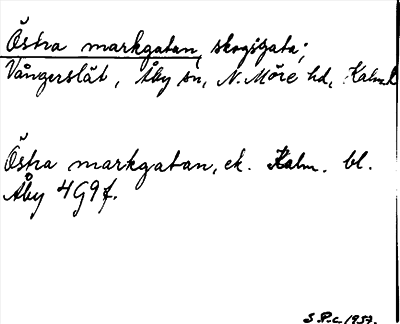 Östra markgatan, skogsgata;
Vångerslät, Åby sn, N. Möre hd, Kalm.l
Östra markgatan, ek. Kalm. bl.
Åby 4G9f.
S.P.c. 1957.